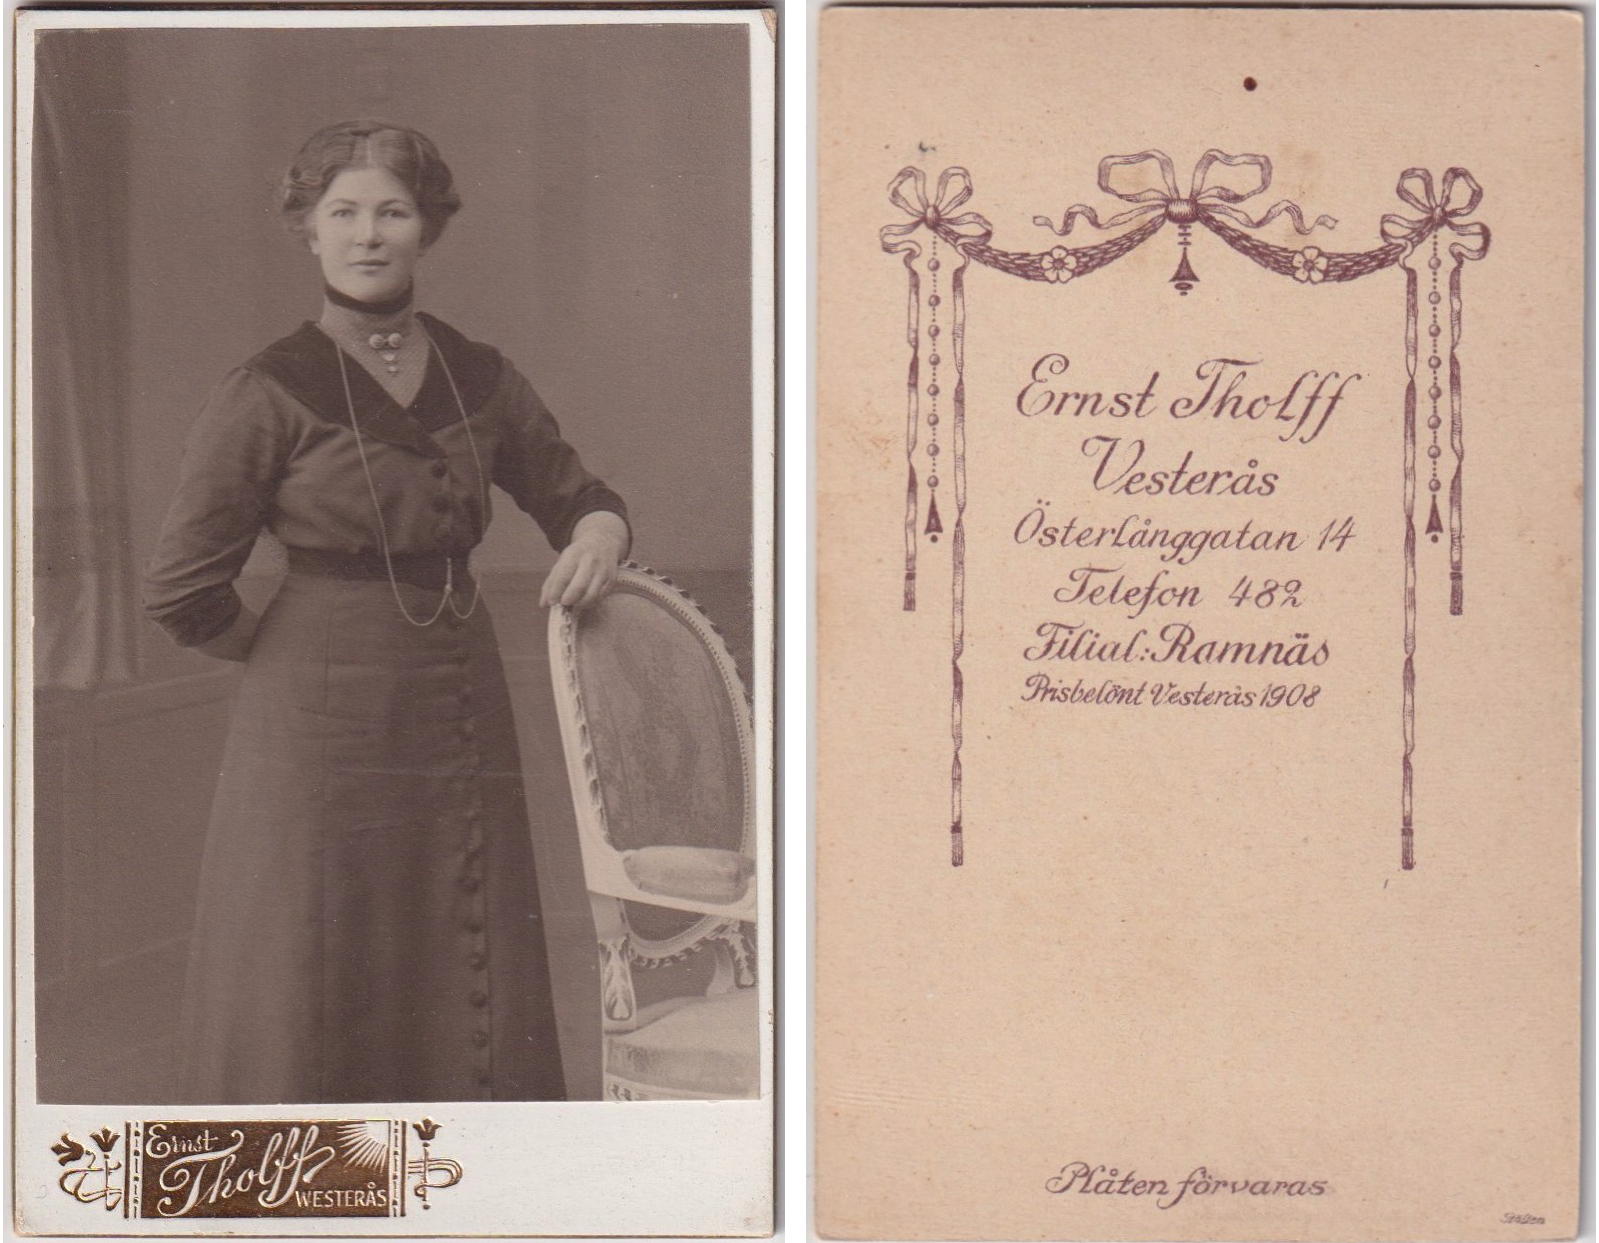 Ernst
Tholff
WESTERÅS
Ernst Tholff
Vesterås
Österlånggatan 14
Telefon 482
Filial: Ramnäs
Prisbelönt Vesterås 1908
Plåten förvaras